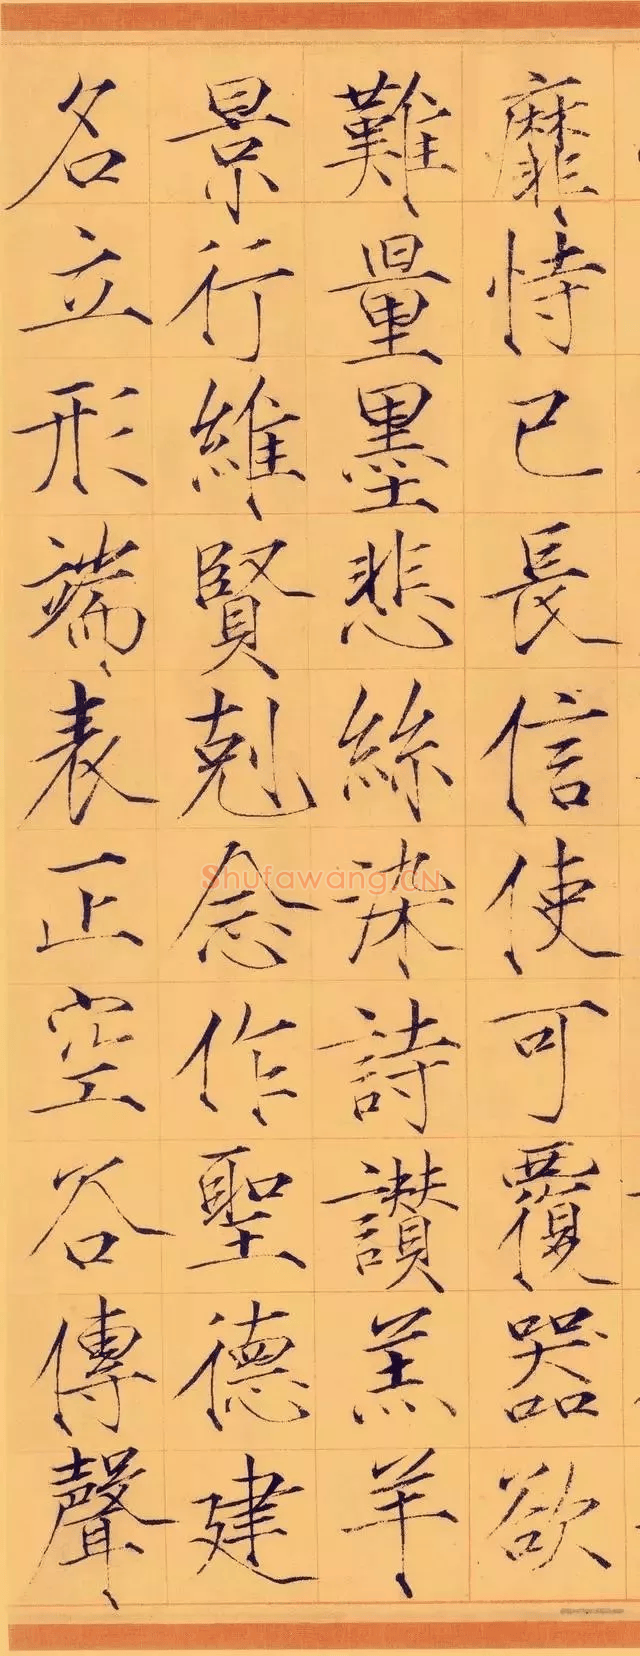 靡恃己長信使可覆器欲
難量墨悲絲染詩讃羔羊
景行維賢剋念作聖德建
名立形端表正空谷傳聲
Shufawang.CN